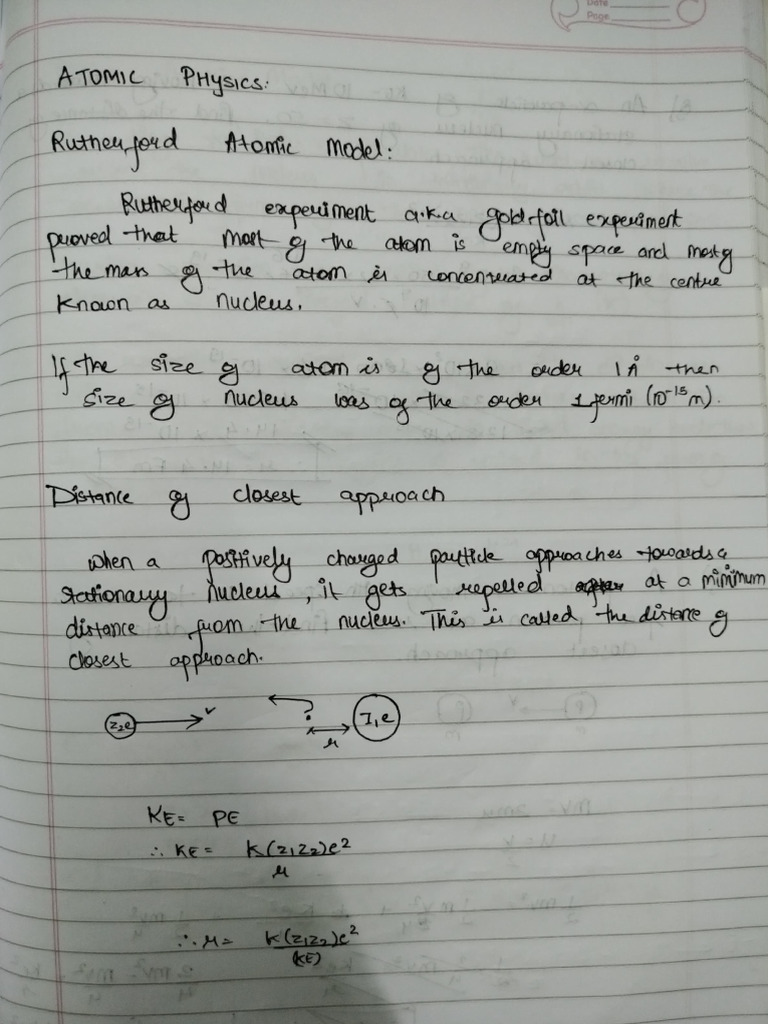 Date
Page
ATOMIC PHYSICS:
Rutherford Atomic Model:
Rutherford experiment a.k.a gold-foil experiment
proved that most of the atom is empty space and most of
the mass of the atom is concentrated at the centre
known as nucleus.
If the size of atom is of the order 1Å then
size of nucleus was of the order 1 fermi (10⁻¹⁵m).
Distance of closest approach
when a positively charged particle approaches towards a
stationary nucleus, it gets repelled at a minimum
distance from the nucleus. This is called the distance of
closest approach.
Z₂e v r Z₁e
KE = PE
∴ KE = K(Z₁Z₂)e²/r
∴ r = K(Z₁Z₂)e²/(KE)